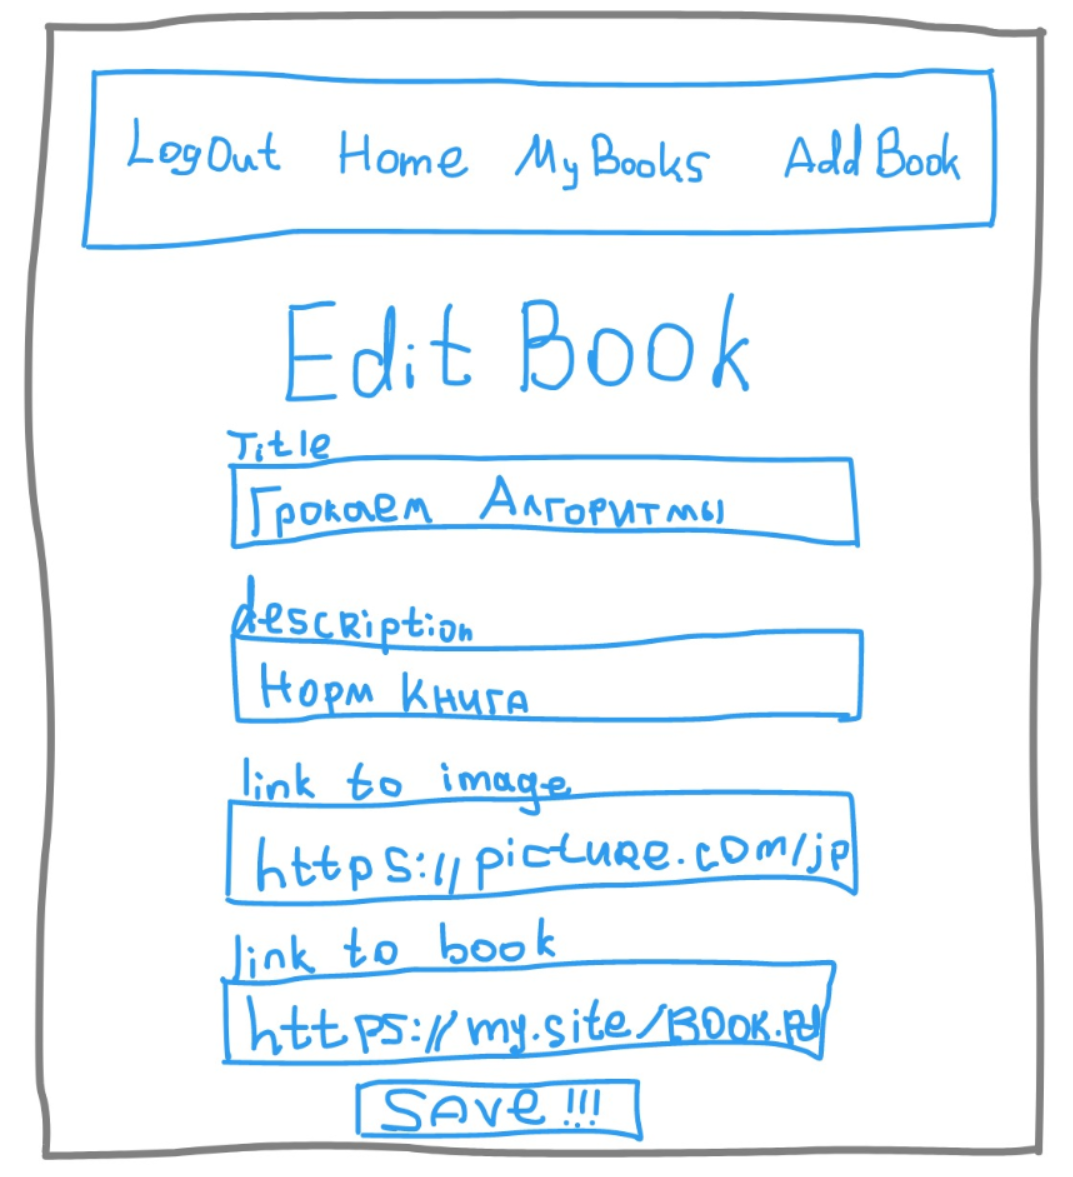 LogOut Home My Books Add Book
Edit Book
Title
Грокаем Алгоритмы
description
Норм Книга
link to image
https://picture.com/jp
link to book
https://my.site/BOOK.pd
SAve!!!